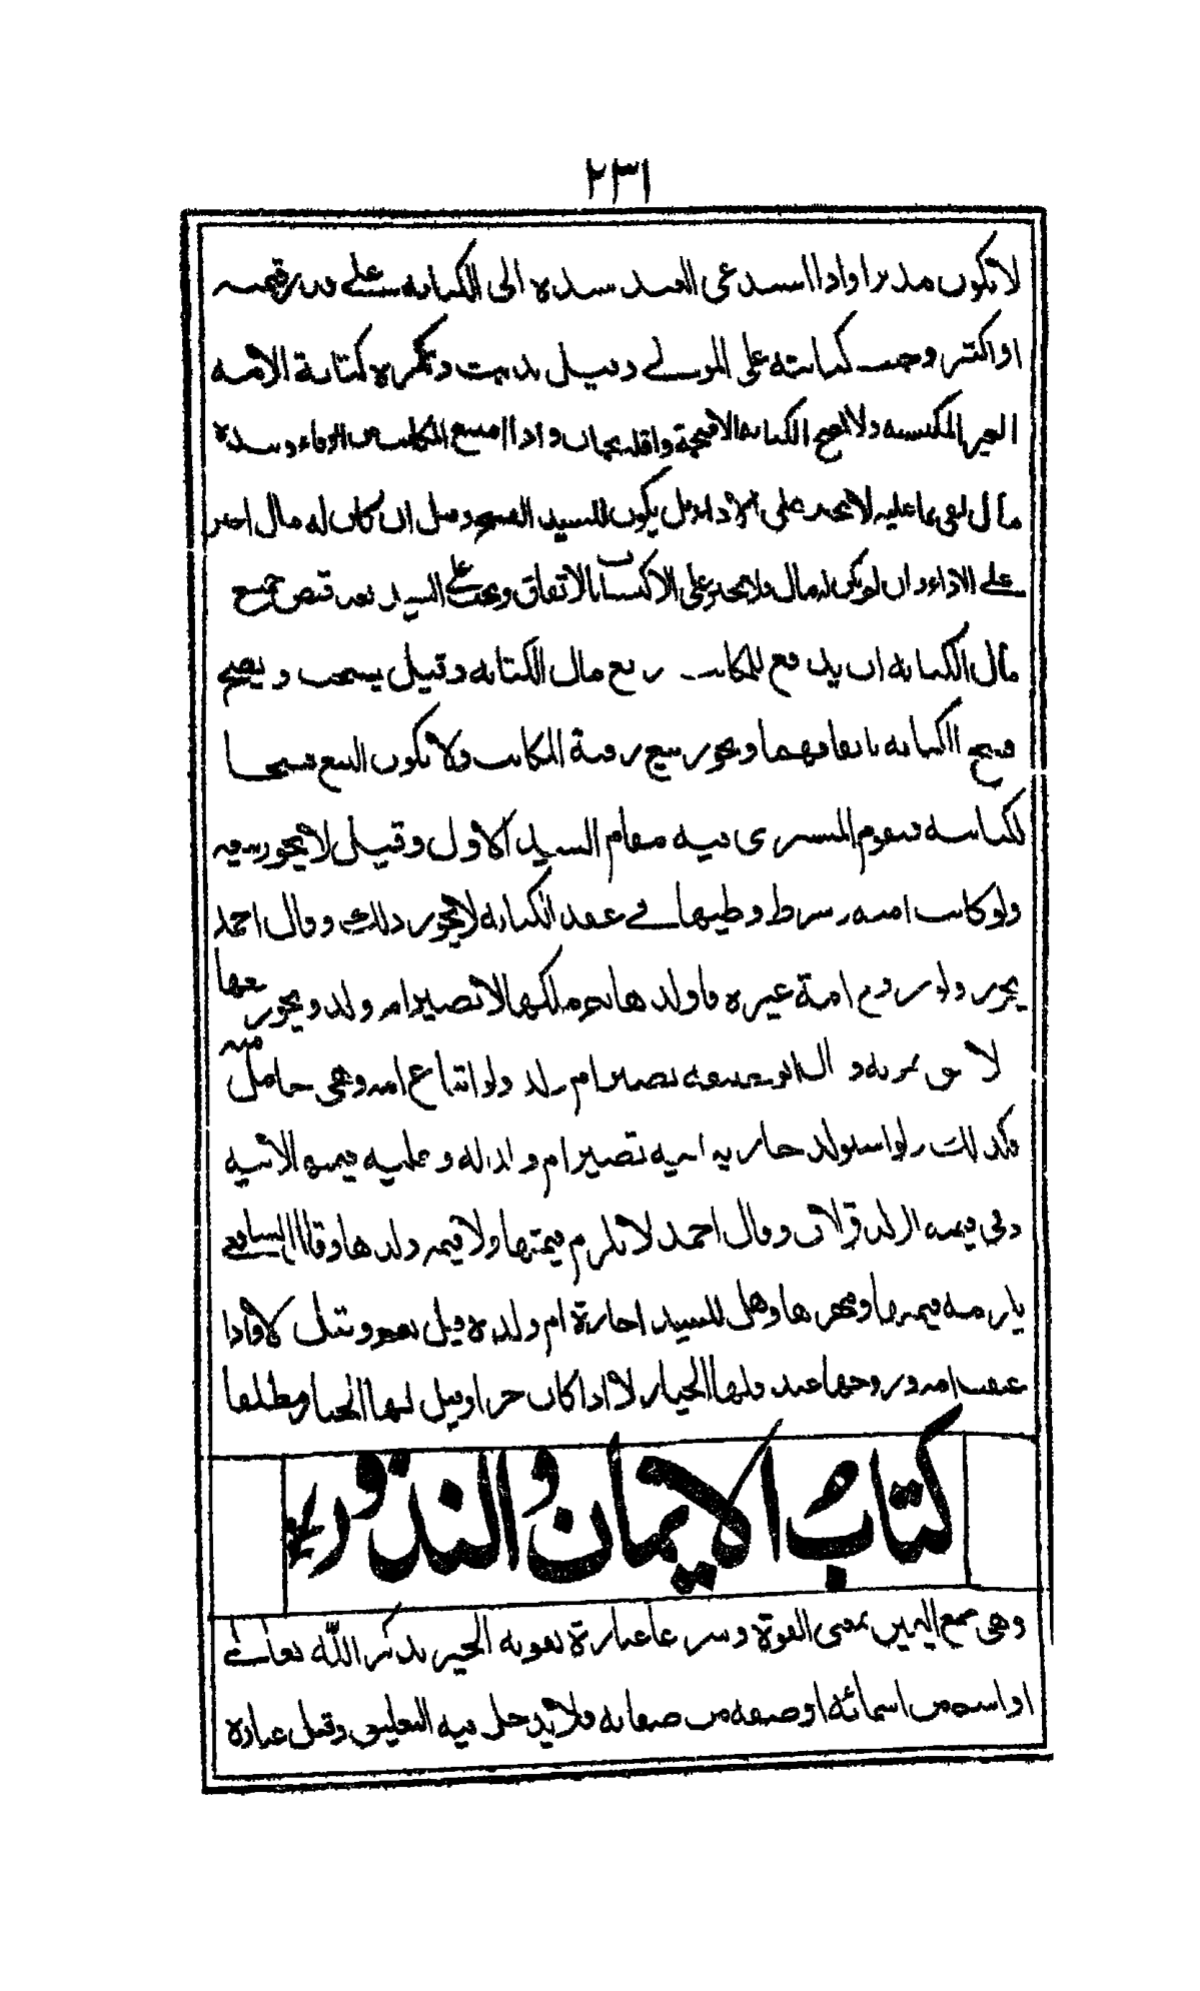 ٢٣١
لا تكون مدبرا واذا استدعى العبد سيده الى الكتابة على قدر قيمته
او اكثر وجب كتابته على المولى وقيل يندب وتكره كتابة الامة
الغير المكتسبة ولا تصح الكتابة الا منجمة واقله نجمان واذا امتنع المكاتب من الوفاء وبيده
مال يفى بما عليه لا يجبر على الاداء بل يكون للسيد الفسخ وقيل ان كان له مال اجبر
على الاداء وان لم يكن له مال فلا يجبر على الاكتساب بالاتفاق ويجب على السيد بعد قبض جميع
مال الكتابة ان يدفع للمكاتب ربع مال الكتابة وقيل يستحب ويصح
فسخ الكتابة باتفاقهما ويجوز بيع رقبة المكاتب ولا تكون البيع فسخا
لكتابته فيقوم المشترى فيه مقام السيد الاول وقيل لا يجوز بيعه
ولو كاتب امته وشرط وطيها فى عقد الكتابة لا يجوز ذلك وقال احمد
يجوز ولو زوج امة غيره فاولدها ثم ملكها لا تصير ام ولد ويجوز بيعها
لا وقال ابو حنيفة تصير ام ولد ولو ابتاع امة وهى حامل منه
فكذلك ولو استولد جارية ابنه تصير ام ولد له وعليه قيمة الابنه
وفى قيمة الولد قولان وقال احمد لا تلزم قيمتها ولا قيمة ولدها وقال الشافعى
يلزمه قيمتها ومهرها وهل للسيد اجارة ام ولده قيل نعم وقيل لا واذا
عتقت امة وزوجها عبد فلها الخيار لا اذا كان حرا وقيل لها الخيار مطلقا
كتاب الايمان والنذور
وهى جمع اليمين بمعنى القوة وشرعا عبارة تقوية الخبر بذكر الله تعالى
او اسم من اسمائه او صفة من صفاته فلا يدخل فيه التعليق وقيل عبارة